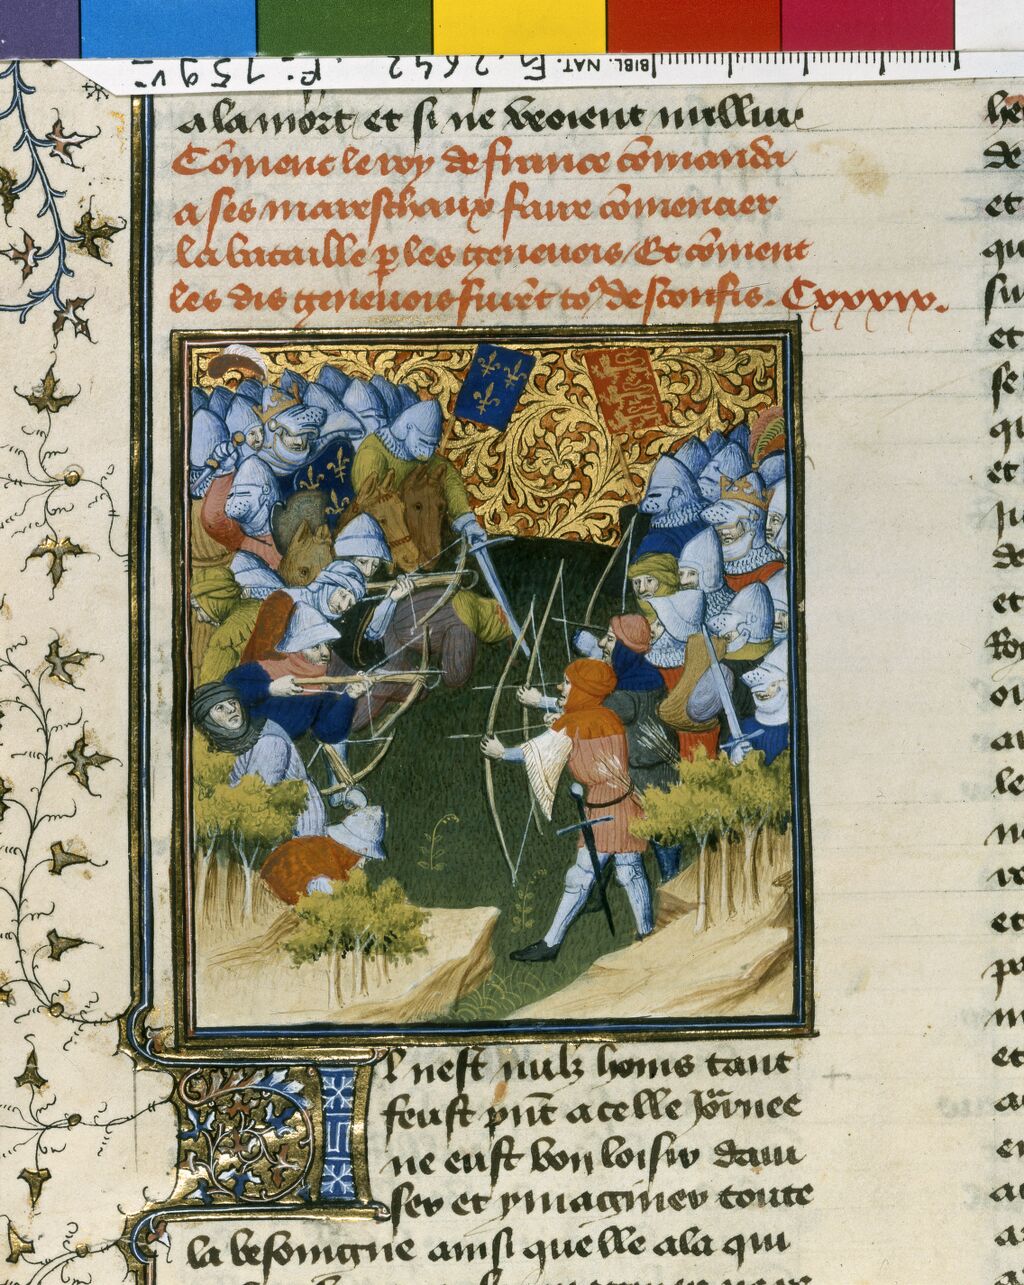 BIBL. NAT. Fr. 2642 . F: 159 v°
a la mort et si ne veoient nullui
Cōment le roy de france cōmanda
a ses mareschaux faire cōmencier
la bataille p̱ les genevois / Et cōment
les dis genevois furēt to⁹ desconfis. Cxxxix.
Il nest nulz homs tant
feust pñt a celle Jōrnee
ne eust bon loisir daui
ser et ymaginer toute
la besoingne ainsi quelle ala qui
et
de
et
qu
et
et
se
qu
et
de
et
Roy
ou
le
et
et
et